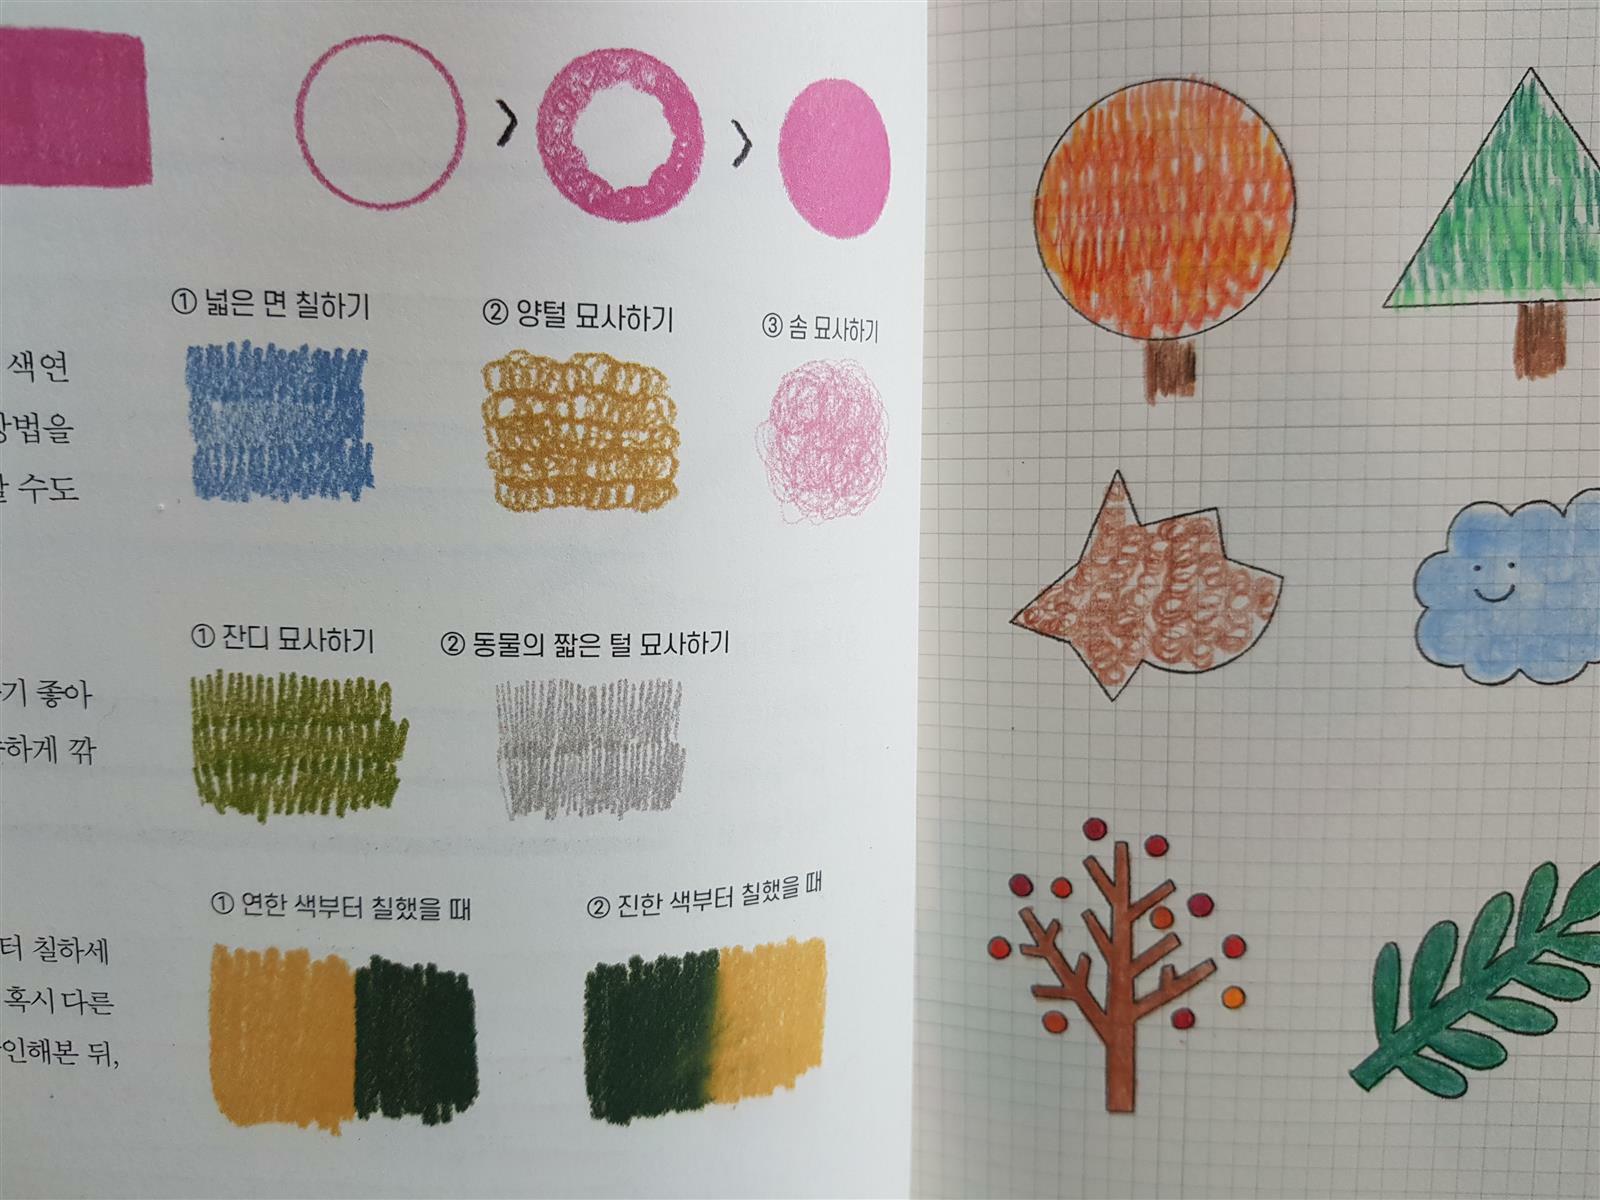 ① 넓은 면 칠하기
② 양털 묘사하기
③ 솜 묘사하기
색연
방법을
수도
① 잔디 묘사하기
② 동물의 짧은 털 묘사하기
기 좋아
하게 깎
① 연한 색부터 칠했을 때
② 진한 색부터 칠했을 때
터 칠하세
혹시 다른
인해본 뒤,